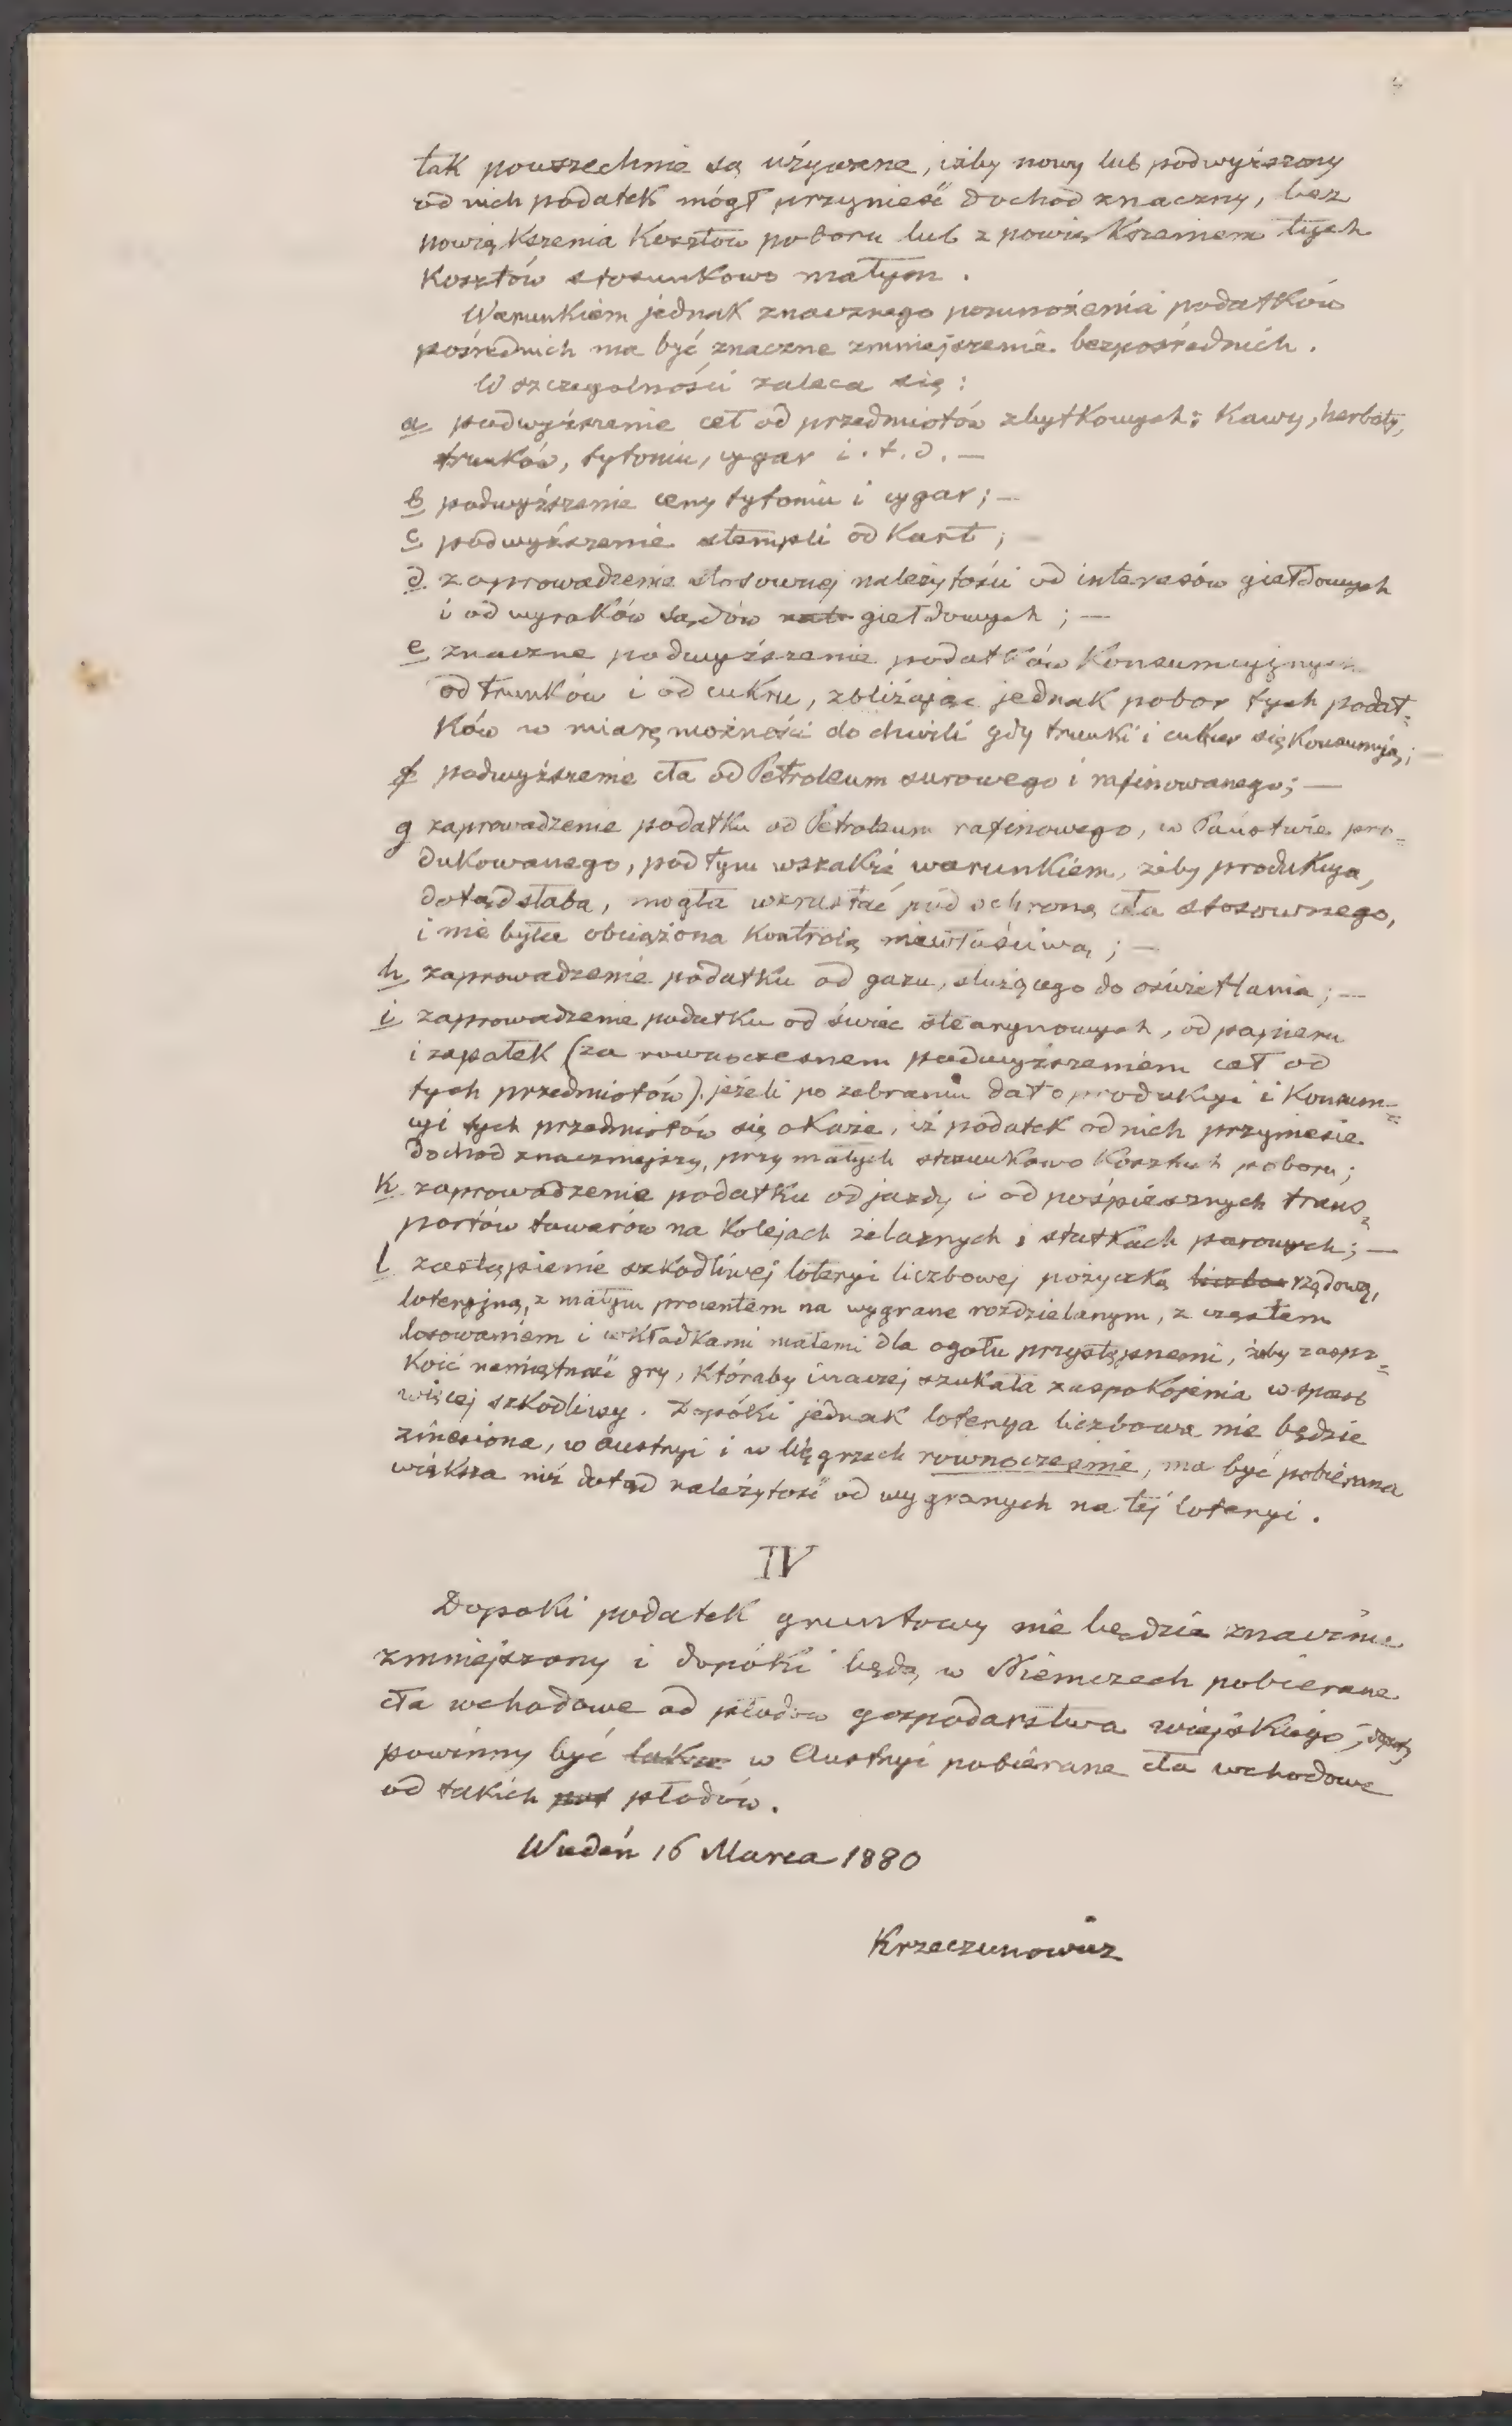 tak powszechnie są używane, iżby nowy lub podwyższony
od nich podatek mógł przynieść dochod znaczny, bez
powiększenia Kosztów poboru lub z powiększeniem tych
Kosztów stosunkowo małym.
Warunkiem jednak znacznego pomnożenia podatków
pośrednich ma być znaczne zmniejszenie bezpośrednich.
W szczegolności zaleca się:
a podwyższenie ceł od przedmiotów zbytkowych: Kawy, herbaty,
trunków, tytoniu, cygar i.t.d. —
b podwyższenie ceny tytoniu i cygar; —
c podwyższenie stempli od Kart;
d zaprowadzenie stosownej należytości od interesów giełdowych
i od wyroków sądów giełdowych; —
e znaczne podwyższenie podatków Konsumcyjnych
od trunków i od cukru, zbliżając jednak pobor tych podat=
ków w miarę możności do chwili gdy trunki i cukier się Konsumują; —
f podwyższenie cła od Petroleum surowego i rafinowanego; —
g zaprowadzenie podatku od Petroleum rafinowego, w Państwie pro=
dukowanego, pod tym wszakże warunkiem, żeby produkcya,
dotąd słaba, mogła wzrastać pod ochroną cła stosownego,
i nie była obciążona Kontrolą niewłaściwą; —
h zaprowadzenie podatku od gazu, służącego do oświetlania; —
i zaprowadzenie podatku od świec stearynowych, od papieru
i zapałek (za rownoczesnem podwyższeniem ceł od
tych przedmiotów) jeżeli po zebraniu dat o produkcyi i Konsum=
cyi tych przedmiotów się okaże, iż podatek od nich przyniesie
dochod znaczniejszy, przy małych stosunkowo Kosztach poboru;
k zaprowadzenie podatku od jazdy i od pośpiesznych trans=
portów towarów na Kolejach żelaznych i statkach parowych; —
l zastąpienie szkodliwej loteryi liczbowej pożyczką rządową,
loteryjną, z małym procentem na wygrane rozdzielanym, z częstem
losowaniem i wkładkami małemi dla ogołu przystępnemi, żeby zaspo=
Koić namiętność gry, Któraby inaczej szukała zaspokojenia w sposob
więcej szkodliwy. Dopóki jednak loterya liczbowa nie będzie
zniesiona, w Austryi i w Węgrzech rownocześnie, ma być pobierana
większa niż dotąd należytość od wygranych na tej loteryi.
IV
Dopoki podatek gruntowy nie będzie znacznie
zmniejszony i dopóki będą w Niemczech pobierane
cła wchodowe od płodów gospodarstwa wiejskiego,
powinny być w Austryi pobierane cła wchodowe
od takich płodów.
Wiedeń 16 Marca 1880
Krzeczunowicz